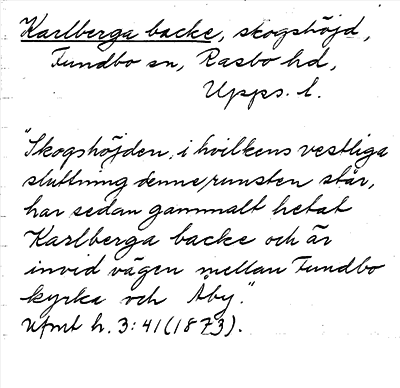 Karlberga backe, skogshöjd,
Funbo sn, Rasbo hd,
Upps. l.
"Skogshöjden, i hvilkens vestliga
sluttning denne runsten står,
har sedan gammalt hetat
Karlberga backe och är
invid vägen mellan Funbo
kyrka och Åby."
Ufmt h. 3:41 (1873).